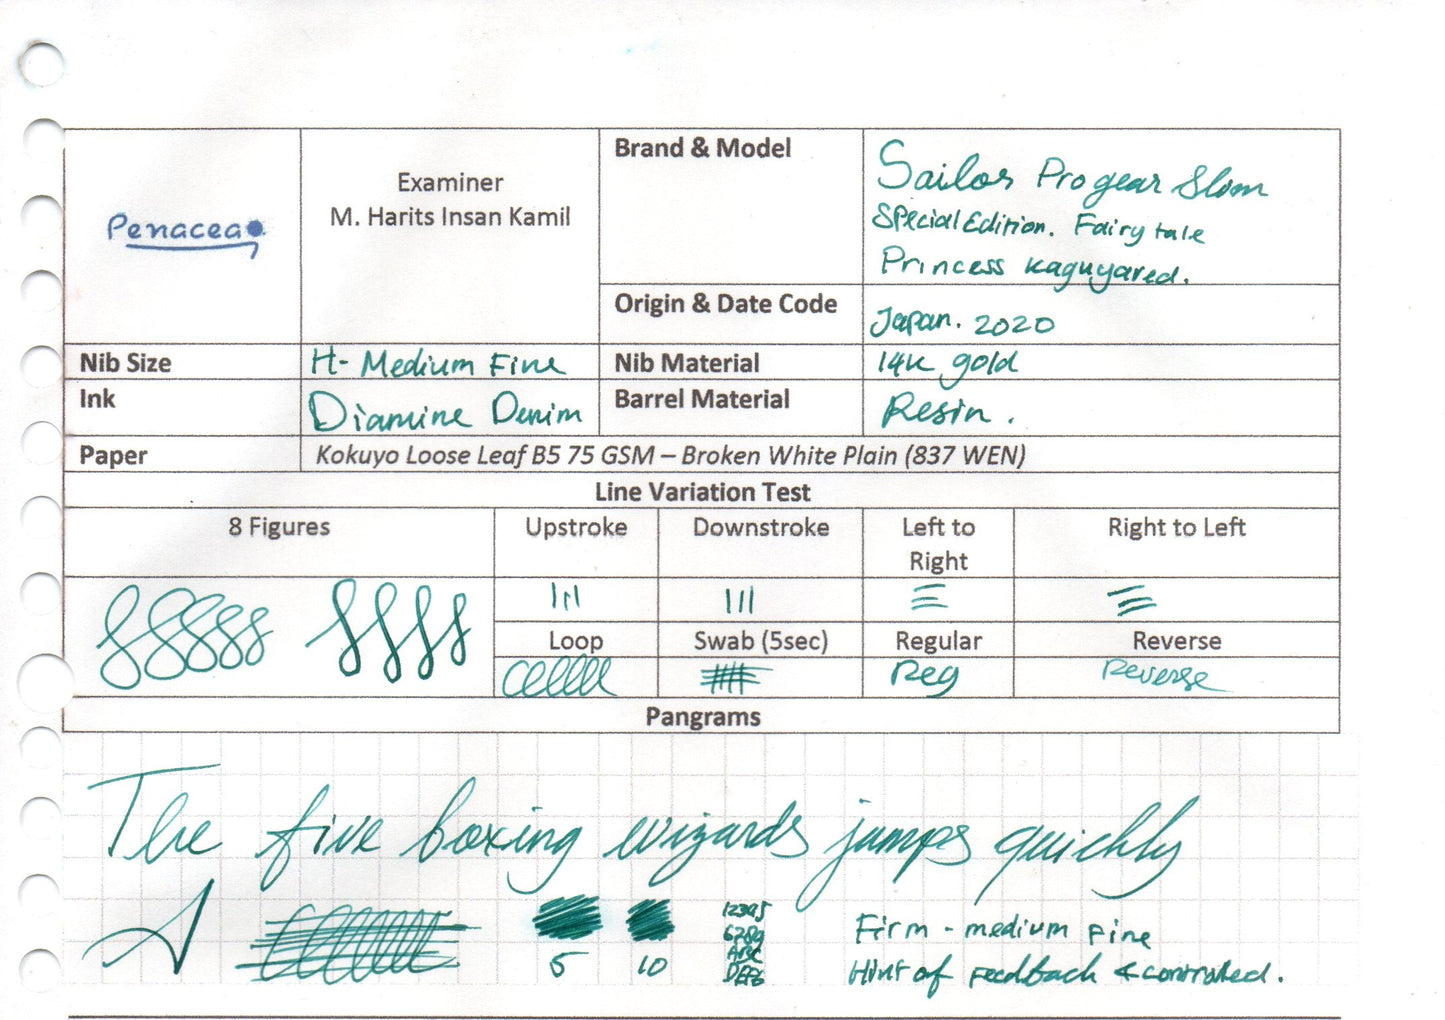 Penacea
Examiner
M. Harits Insan Kamil
Brand & Model
Sailor Progear Slim
Special Edition. Fairy tale
Princess Kaguyared.
Origin & Date Code
Japan. 2020
Nib Size
H- Medium Fine
Nib Material
14K gold
Ink
Diamine Denim
Barrel Material
Resin.
Paper
Kokuyo Loose Leaf B5 75 GSM – Broken White Plain (837 WEN)
Line Variation Test
8 Figures
Upstroke
Downstroke
Left to
Right
Right to Left
Loop
Swab (5sec)
Regular
Reverse
Reg
Reverse
Pangrams
The five boxing wizards jumps quickly
5
10
12345
6789
ABC
DEFG
Firm - medium fine
Hint of feedback & controlled.